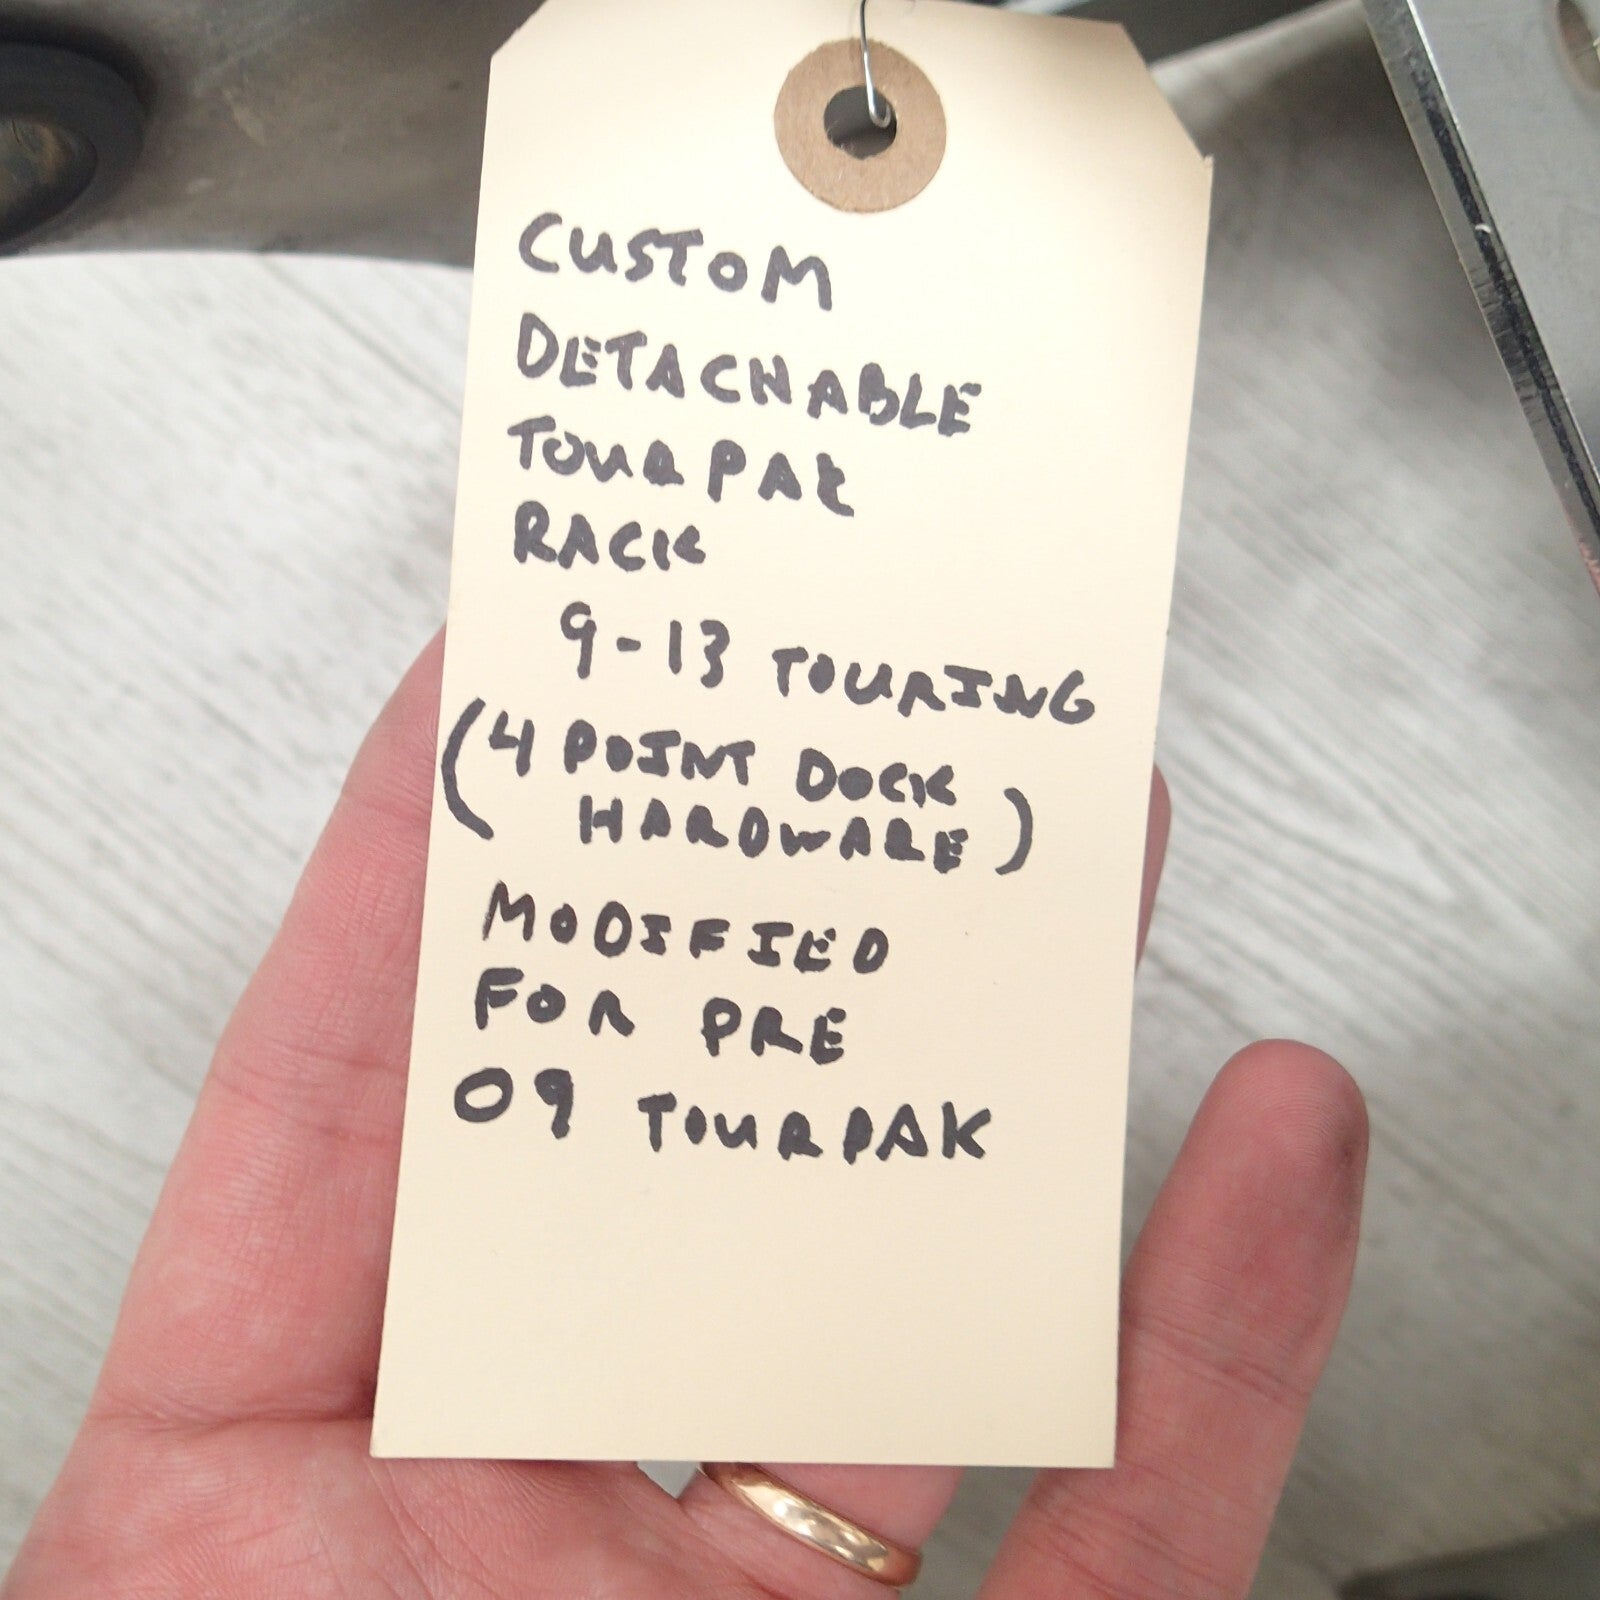 CUSTOM
DETACHABLE
TOURPAK
RACK
9-13 TOURING
(4 POINT DOCK
HARDWARE)
MODIFIED
FOR PRE
09 TOURPAK